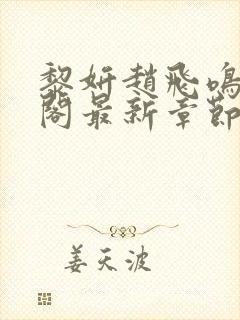 黎妍趙飛鳴
閣最新章節
姜天波